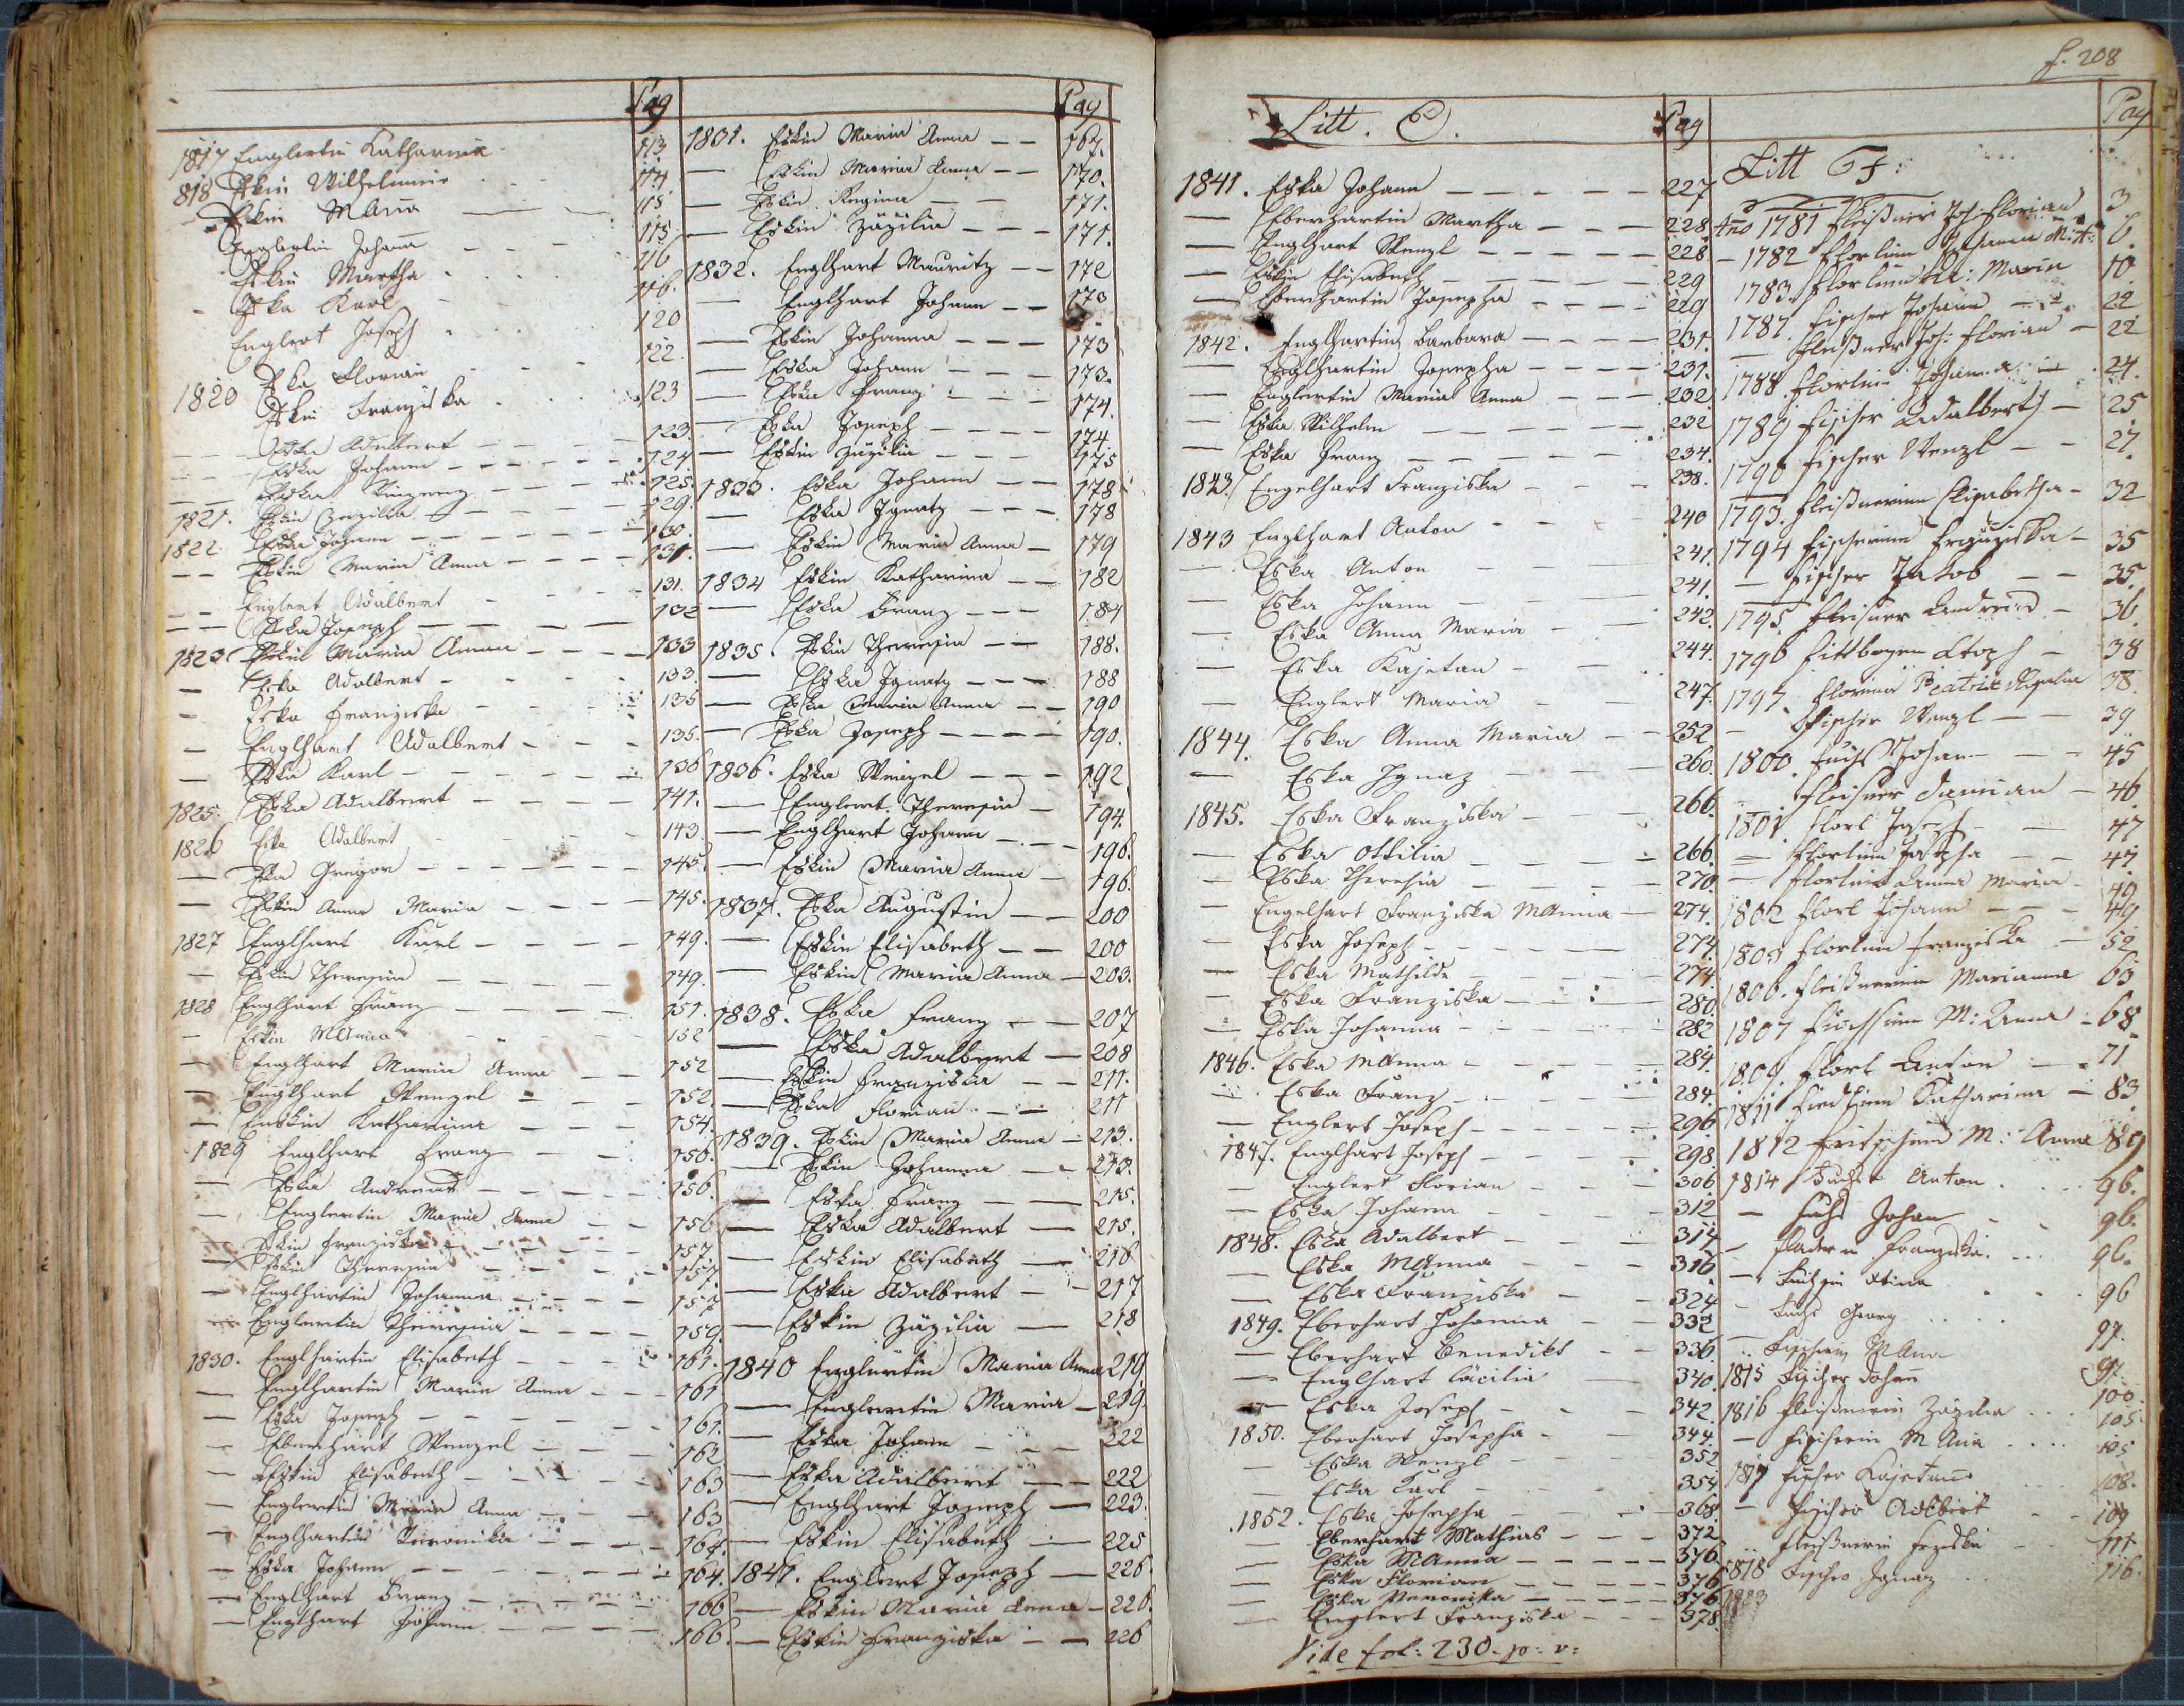 Pag
1817 Englertin Katharina 113
818 Eskin Wilhelmine 114
Eskin MAnna 115
Englertin Johanna 115
Eskin Martha 116
Eska Karl 116.
Englert Joseph 120
1820 Eska Florian 122
Eskin Franziska 123
Eska Adalbert 123.
Eska Johann 124
Eska Vinzenz 125.
1821. Eskin Zezilia 129.
1822 Eska Johann 130.
Eskin Maria Anna 131.
Englert Adalbert 131.
Eska Joseph 132
1823 Eskin Maria Anna 133
Eska Adalbert 133.
Eska Franziska 135
Englhart Adalbert 135.
Eska Karl 136
1825. Eska Adalbert 141.
1826 Eska Adalbert 143.
Eska Gregor 145.
Eskin Anna Maria 145.
1827 Englhart Karl 149.
Eskin Theresia 149.
1828 Englhart Franz 151.
Eskin MAnna 152
Englhart Maria Anna 152
Englhart Wenzel 152
Enskin Katharina 154.
1829 Englhart Franz 156.
Eska Andreas 156.
Englertin Maria Anna 156
Eskin Franziska 157.
Eskin Theresia 157.
Englhartin Johanna 157
Englertin Theresia 159.
1830. Englhartin Elisabeth 161.
Englhartin Maria Anna 161
Eska Joseph 161.
Eberhart Wenzel 162
Eskin Elisabeth 163
Englertin Maria Anna 163
Englhartin Veronika 164.
Eska Johann 164.
Englhart Franz 166
Englhart Johann 166.
Pag
1831. Eskin Maria Anna 167.
Eskin Maria Anna 170.
Eskin Regina 171.
Eskin Zäzilia 171.
1832. Englhart Mauritz 172
Englhart Johann 173
Eskin Johanna 173
Eska Johann 173.
Eska Franz 174.
Eska Joseph 174
Eskin Zäzilia 175
1833. Eska Johann 178
Eska Ignatz 178
Eskin Maria Anna 179
1834 Eskin Katharina 182
Eska Franz 184
1835. Eskin Theresia 188.
Eska Ignatz 188
Eska Maria Anna 190
Eska Joseph 190.
1836. Eska Wenzel 192
Englert Theresia 194.
Englhart Johann 196.
Eskin Maria Anna 196.
1837. Eska Augustin 200
Eskin Elisabeth 200
Eskin Maria Anna 203.
1838. Eska Franz 207
Eska Adalbert 208
Eskin Franziska 211.
Eska Florian 211
1839. Eskin Maria Anna 213.
Eskin Johanna 213.
Eska Franz 215.
Eska Adalbert 215.
Eskin Elisabeth 216
Eska Adalbert 217
Eskin Zäzilia 218
1840 Englertin Maria Anna 219.
Englertin Maria 219.
Eska Johann 222
Eska Adalbert 222
Englhart Joseph 223.
Eskin Elisabeth 225
1841. Englert Joseph 226.
Eskin Maria Anna 226.
Eskin Franziska 226
f. 208
Litt. E. Pag
1841. Eska Johann 227
Eberhartin Martha 228
Englhart Wenzl 228
Eskin Elisabeth 229
Eberhartin Josepha 229
1842. Englhartin Barbara 231.
Englhartin Josepha 231.
Englertin Maria Anna 232
Eska Wilhelm 232
Eska Franz 234.
1843. Engelhart Franziska 238.
1843 Englhart Anton 240
Eska Anton 241.
Eska Johann 241.
Eska Anna Maria 242.
Eska Kajetan 244.
Englert Maria 247.
1844. Eska Anna Maria 252
Eska Ignaz 260.
1845. Eska Franziska 266.
Eska Ottilia 266.
Eska Theresia 270.
Engelhart Franziska MAnna 274.
Eska Joseph 274.
Eska Mathilde 274.
Eska Franziska 280.
Eska Johanna 282
1846. Eska MAnna 284.
Eska Franz 284.
Englert Joseph 296
1847. Englhart Joseph 298
Englert Florian 306
Eska Johann 312
1848. Eska Adalbert 314
Eska MAnna 316
Eska Franziska 324
1849. Eberhart Johanna 332
Eberhart Benedikt 336
Englhart Cäcilia 340
Eska Joseph 342
1850. Eberhart Josepha 344
Eska Wenzl 352
Eska Karl 354
1852. Eska Josepha 368.
Eberhart Mathias 372
Eska MAnna 376
Eska Florian 376
Eska Veronika 376
Englert Franziska 378
Vide fol: 230. p: v:
Pag
Litt F:
Ano 1781 Fleißner Joh: Florian 3
1782 Florlinn Johanna M:A: 6.
1783. Florlinn Maria 10
1787. Fischer Johann 22
Fleißner Joh: Florian 22
1788. Florlinn Johanna 24.
1789 Fischer Adalbert 25
1790 Fischer Wenzl 27.
1793. Fleißnerinn Elisabetha 32
1794 Fischerinn Franziska 35
Fischer Jakob 35.
1795. Fleißner Andreas 36.
1796 Fittbogen 38
1797. Beatrix Rosalia 38.
Fischer Wenzl 39
1800. Fuchs Johann 45
Fleißner Damian 46
1801 Florl Joseph 47
Florlinn Josepha 47
Florlinn Anna Maria 49
1802 Florl Johann 49
1803 Florlinn Franziska 52
1806. Fleißnerinn Marianna 63
1807 Füchsinn M: Anna 68
1809. Florl Anton 71
1811 Katharina 83
1812 Fritschinn M: Anna 89
1814 Fuchs Anton 96.
Fuchs Johan 96.
Franziska 96.
96
Fuchs Georg 97.
Fischerin MAna 97.
1815 Fischer Johan 100
1816 Fleißnerin Zäzilia 105.
Fischerin M Ana 105
1817 Fischer Kajetan 108.
Fischer Adlbert 109
Fleißnerin 111
1818 Fischer Ignaz 116.